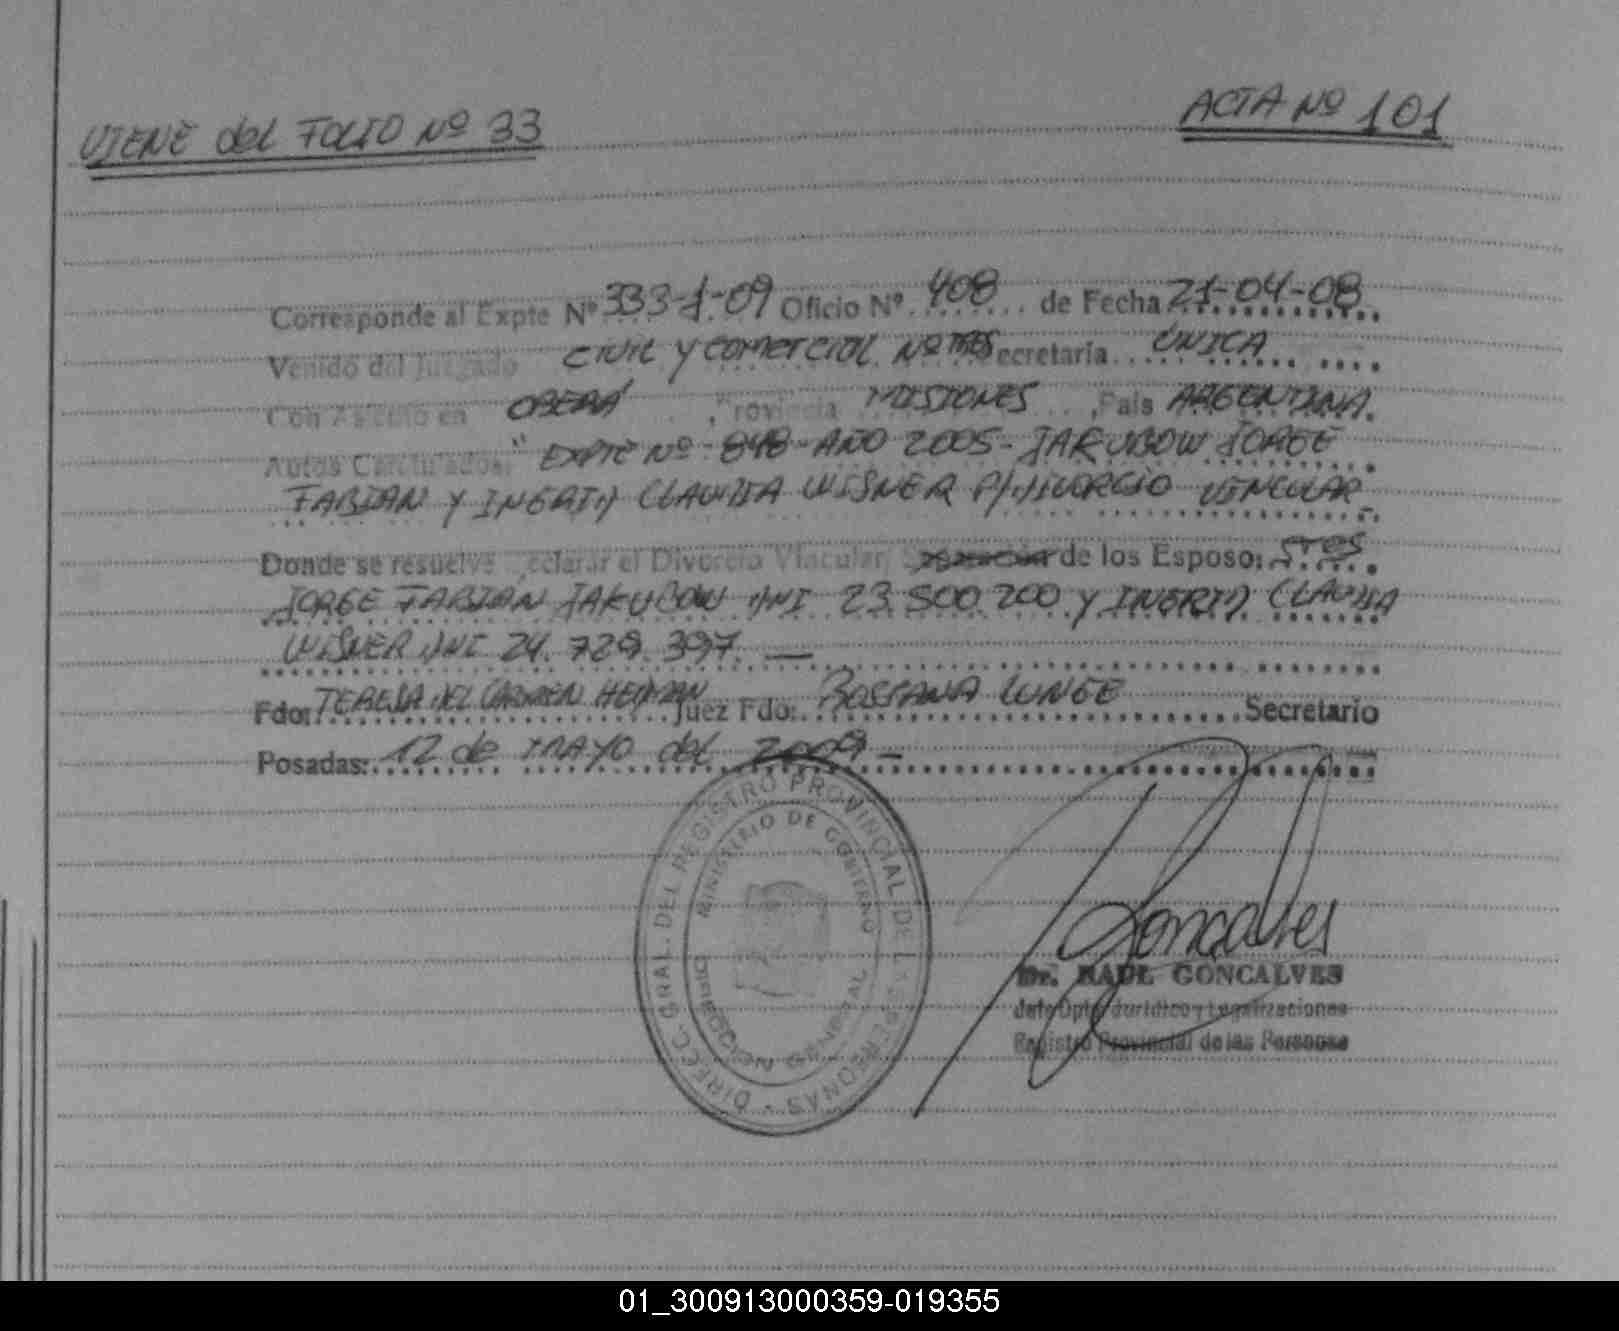 VIENE del FOLIO Nº 33
ACTA Nº 101
Corresponde al Expte Nº 333-J-09 Oficio Nº 408 de Fecha 21-04-08
Venido del Juzgado CIVIL y COMERCIAL Nº TRES Secretaria UNICA
Con Asiento en OBERÁ, Provincia MISIONES, Pais ARGENTINA.
Autos Caratulados: "EXPTE Nº 848-AÑO 2005- JAKUBOW JORGE
FABIAN Y INGRID CLAUDIA WISNER P/DIVORCIO VINCULAR-
Donde se resuelve declarar el Divorcio Vincular, de los Esposo: Sres
JORGE FABIAN JAKUBOW DNI 23.500.200 y INGRID CLAUDIA
WISNER DNI 24.729.397. —
Fdo: TERESA DEL CARMEN Juez Fdo: ROSSANA Secretario
Posadas: 12 de MAYO del 2009 -
DIRECC. GRAL. DEL REGISTRO PROVINCIAL DE LAS PERSONAS
MINISTERIO DE GOBIERNO
DIRECCION GENERAL
Goncalves
Dr. RAUL GONCALVES
Jefe Dpto Juridico y Legalizaciones
Registro Provincial de las Personas
01_300913000359-019355